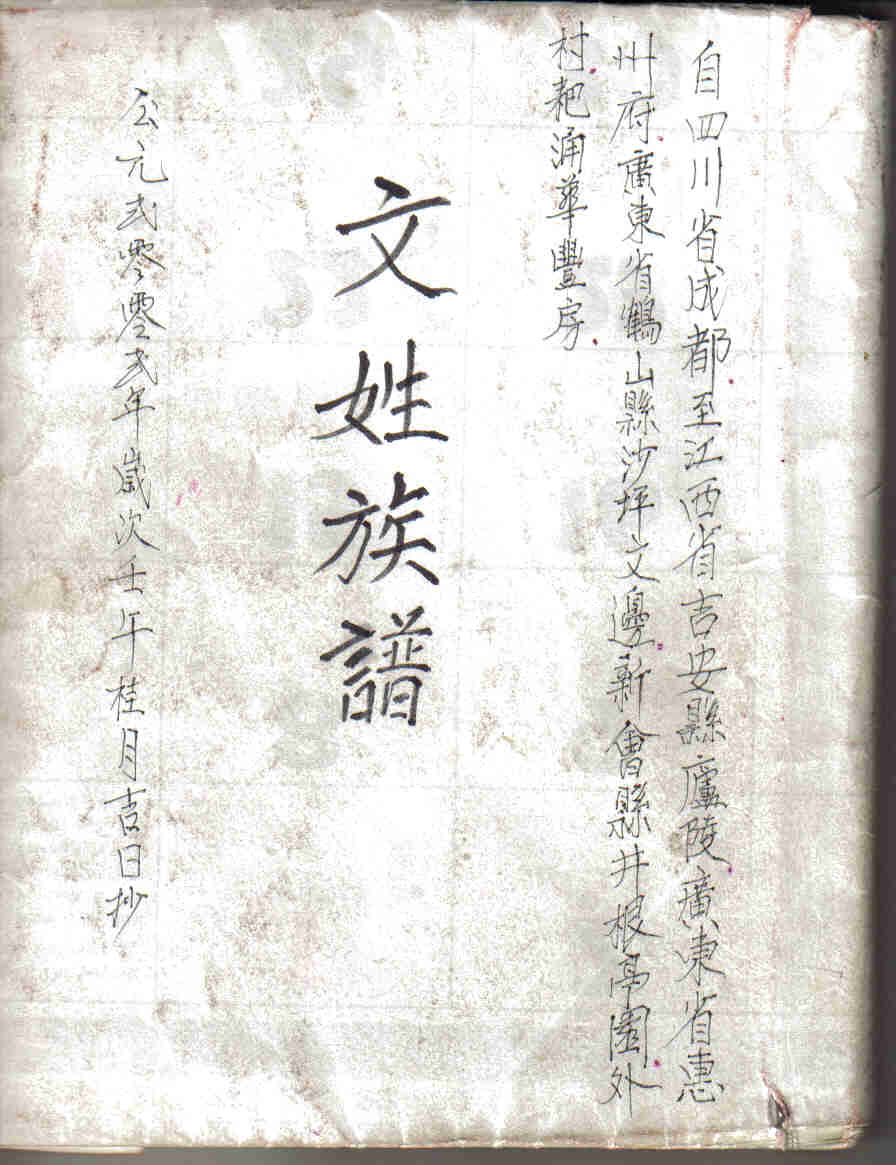 自四川省成都至江西省吉安縣廬陵廣東省惠
州府廣東省鶴山縣沙坪文邊新會縣井根亭園外
村耙涌華豐房
文姓族譜
公元弍零零弍年歲次壬午桂月吉日抄